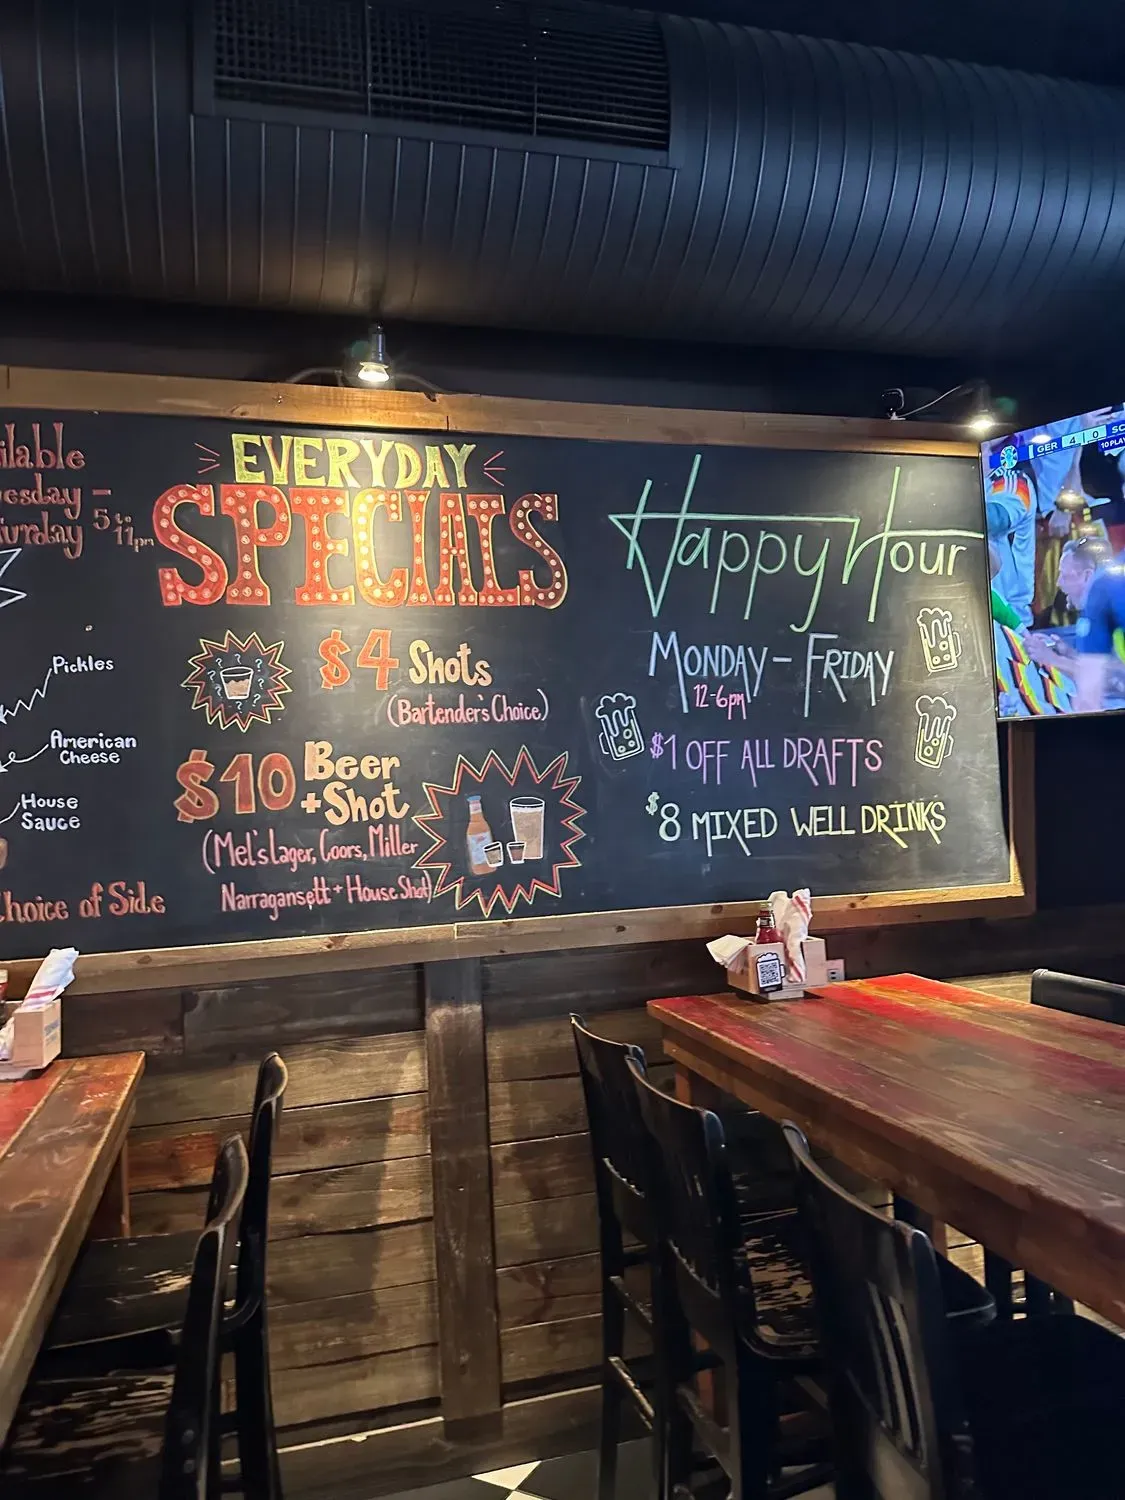 esday -
5 to
11pm
Pickles
American
Cheese
House
Sauce
Choice of Side
EVERYDAY
SPECIALS
$4 Shots
(Bartender's Choice)
$10 Beer
+Shot
(Mel's Lager, Coors, Miller
Narragansett + House Shot)
Happy Hour
MONDAY - FRIDAY
12-6pm
$1 OFF ALL DRAFTS
$8 MIXED WELL DRINKS
GER 4 0 SC
10 PLAY